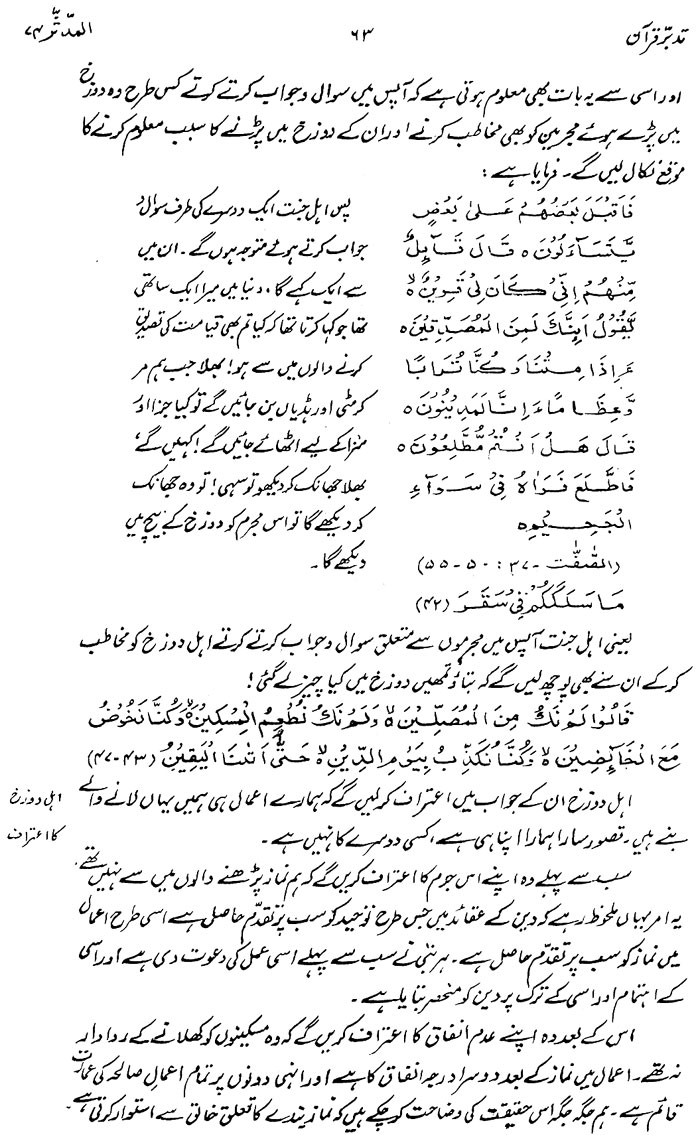 تدبّرِ قرآن ۶۳ المدّثّر ۷۴
اور اسی سے یہ بات بھی معلوم ہوتی ہے کہ آپس میں سوال و جواب کرتے کرتے کس طرح وہ دوزخ
میں پڑے ہوئے مجرمین کو بھی مخاطب کرنے اور ان کے دوزخ میں پڑنے کا سبب معلوم کرنے کا
موقع نکال لیں گے۔ فرمایا ہے :
فَاَقْبَلَ بَعْضُهُمْ عَلٰى بَعْضٍ پس اہل جنت ایک دوسرے کی طرف سوال و
يَّتَسَآءَلُوْنَ ه قَالَ قَآئِلٌ جواب کرتے ہوئے متوجہ ہوں گے۔ ان میں
مِّنْهُمْ اِنِّيْ كَانَ لِيْ قَرِيْنٌ ه سے ایک کہے گا، دنیا میں میرا ایک ساتھی
يَّقُوْلُ اَئِنَّكَ لَمِنَ الْمُصَدِّقِيْنَ ه تھا جو کہا کرتا تھا کہ کیا تم بھی قیامت کی تصدیق
ءَاِذَا مِتْنَا وَكُنَّا تُرَابًا کرنے والوں میں سے ہو! بھلا جب ہم مر
وَّعِظَامًا ءَاِنَّا لَمَدِيْنُوْنَ ه کر مٹی اور ہڈیاں بن جائیں گے تو کیا جزا اور
قَالَ هَلْ اَنْتُمْ مُّطَّلِعُوْنَ ه سزا کے لیے اٹھائے جائیں گے! کہیں گے
فَاطَّلَعَ فَرَاٰهُ فِيْ سَوَآءِ بھلا جھانک کر دیکھو تو سہی! تو وہ جھانک
الْجَحِيْمِ ه کر دیکھے گا تو اس مجرم کو دوزخ کے بیچ میں
(الصّٰفّٰت -۳۷ : ۵۰ - ۵۵) دیکھے گا۔
مَا سَلَكَكُمْ فِيْ سَقَرَ (۴۲)
یعنی اہل جنت آپس میں مجرموں سے متعلق سوال و جواب کرتے کرتے اہل دوزخ کو مخاطب
کر کے ان سے بھی پوچھ لیں گے کہ بتاؤ تمھیں دوزخ میں کیا چیز لے گئی!
قَالُوْا لَمْ نَكُ مِنَ الْمُصَلِّيْنَ ه وَلَمْ نَكُ نُطْعِمُ الْمِسْكِيْنَ ه وَكُنَّا نَخُوْضُ
مَعَ الْخَآئِضِيْنَ ه وَكُنَّا نُكَذِّبُ بِيَوْمِ الدِّيْنِ ه حَتّٰٓى اَتٰىنَا الْيَقِيْنُ (۴۳-۴۷)
اہل دوزخ ان کے جواب میں اعتراف کر لیں گے کہ ہمارے اعمال ہی ہمیں یہاں لانے والے اہل دوزخ
بنے ہیں۔ قصور سارا ہمارا اپنا ہی ہے، کسی دوسرے کا نہیں ہے۔ کا اعتراف
سب سے پہلے وہ اپنے اس جرم کا اعتراف کریں گے کہ ہم نماز پڑھنے والوں میں سے نہیں تھے۔
یہ امر یہاں ملحوظ رہے کہ دین کے عقائد میں جس طرح توحید کو سب پر تقدّم حاصل ہے اسی طرح اعمال
میں نماز کو سب پر تقدّم حاصل ہے۔ ہر نبی نے سب سے پہلے اسی عمل کی دعوت دی ہے اور اسی
کے اہتمام اور اسی کے ترک پر دین کو منحصر بتایا ہے۔
اس کے بعد وہ اپنے عدم انفاق کا اعتراف کریں گے کہ وہ مسکینوں کو کھلانے کے روادار
نہ تھے۔ اعمال میں نماز کے بعد دوسرا درجہ انفاق کا ہے اور انہی دونوں پر تمام اعمالِ صالحہ کی عمارت
قائم ہے۔ ہم جگہ جگہ اس حقیقت کی وضاحت کر چکے ہیں کہ نماز بندے کا تعلق خالق سے استوار کرتی ہے۔